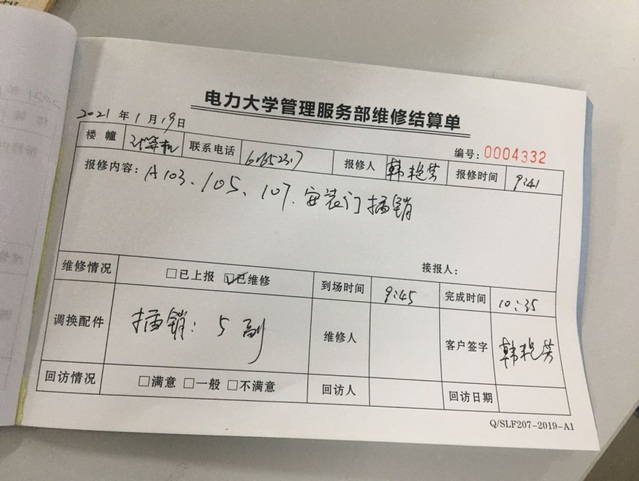 电力大学管理服务部维修结算单
2021年1月19日
编号：0004332
楼幢 计算机 联系电话 报修人 韩艳芳 报修时间 9:41
报修内容：A103、105、107.安装门插销
接报人：
维修情况 □已上报 ☑已维修 到场时间 9:45 完成时间 10:35
调换配件 插销：5副 维修人 客户签字 韩艳芳
回访情况 □满意 □一般 □不满意 回访人 回访日期
Q/SLF207-2019-A1